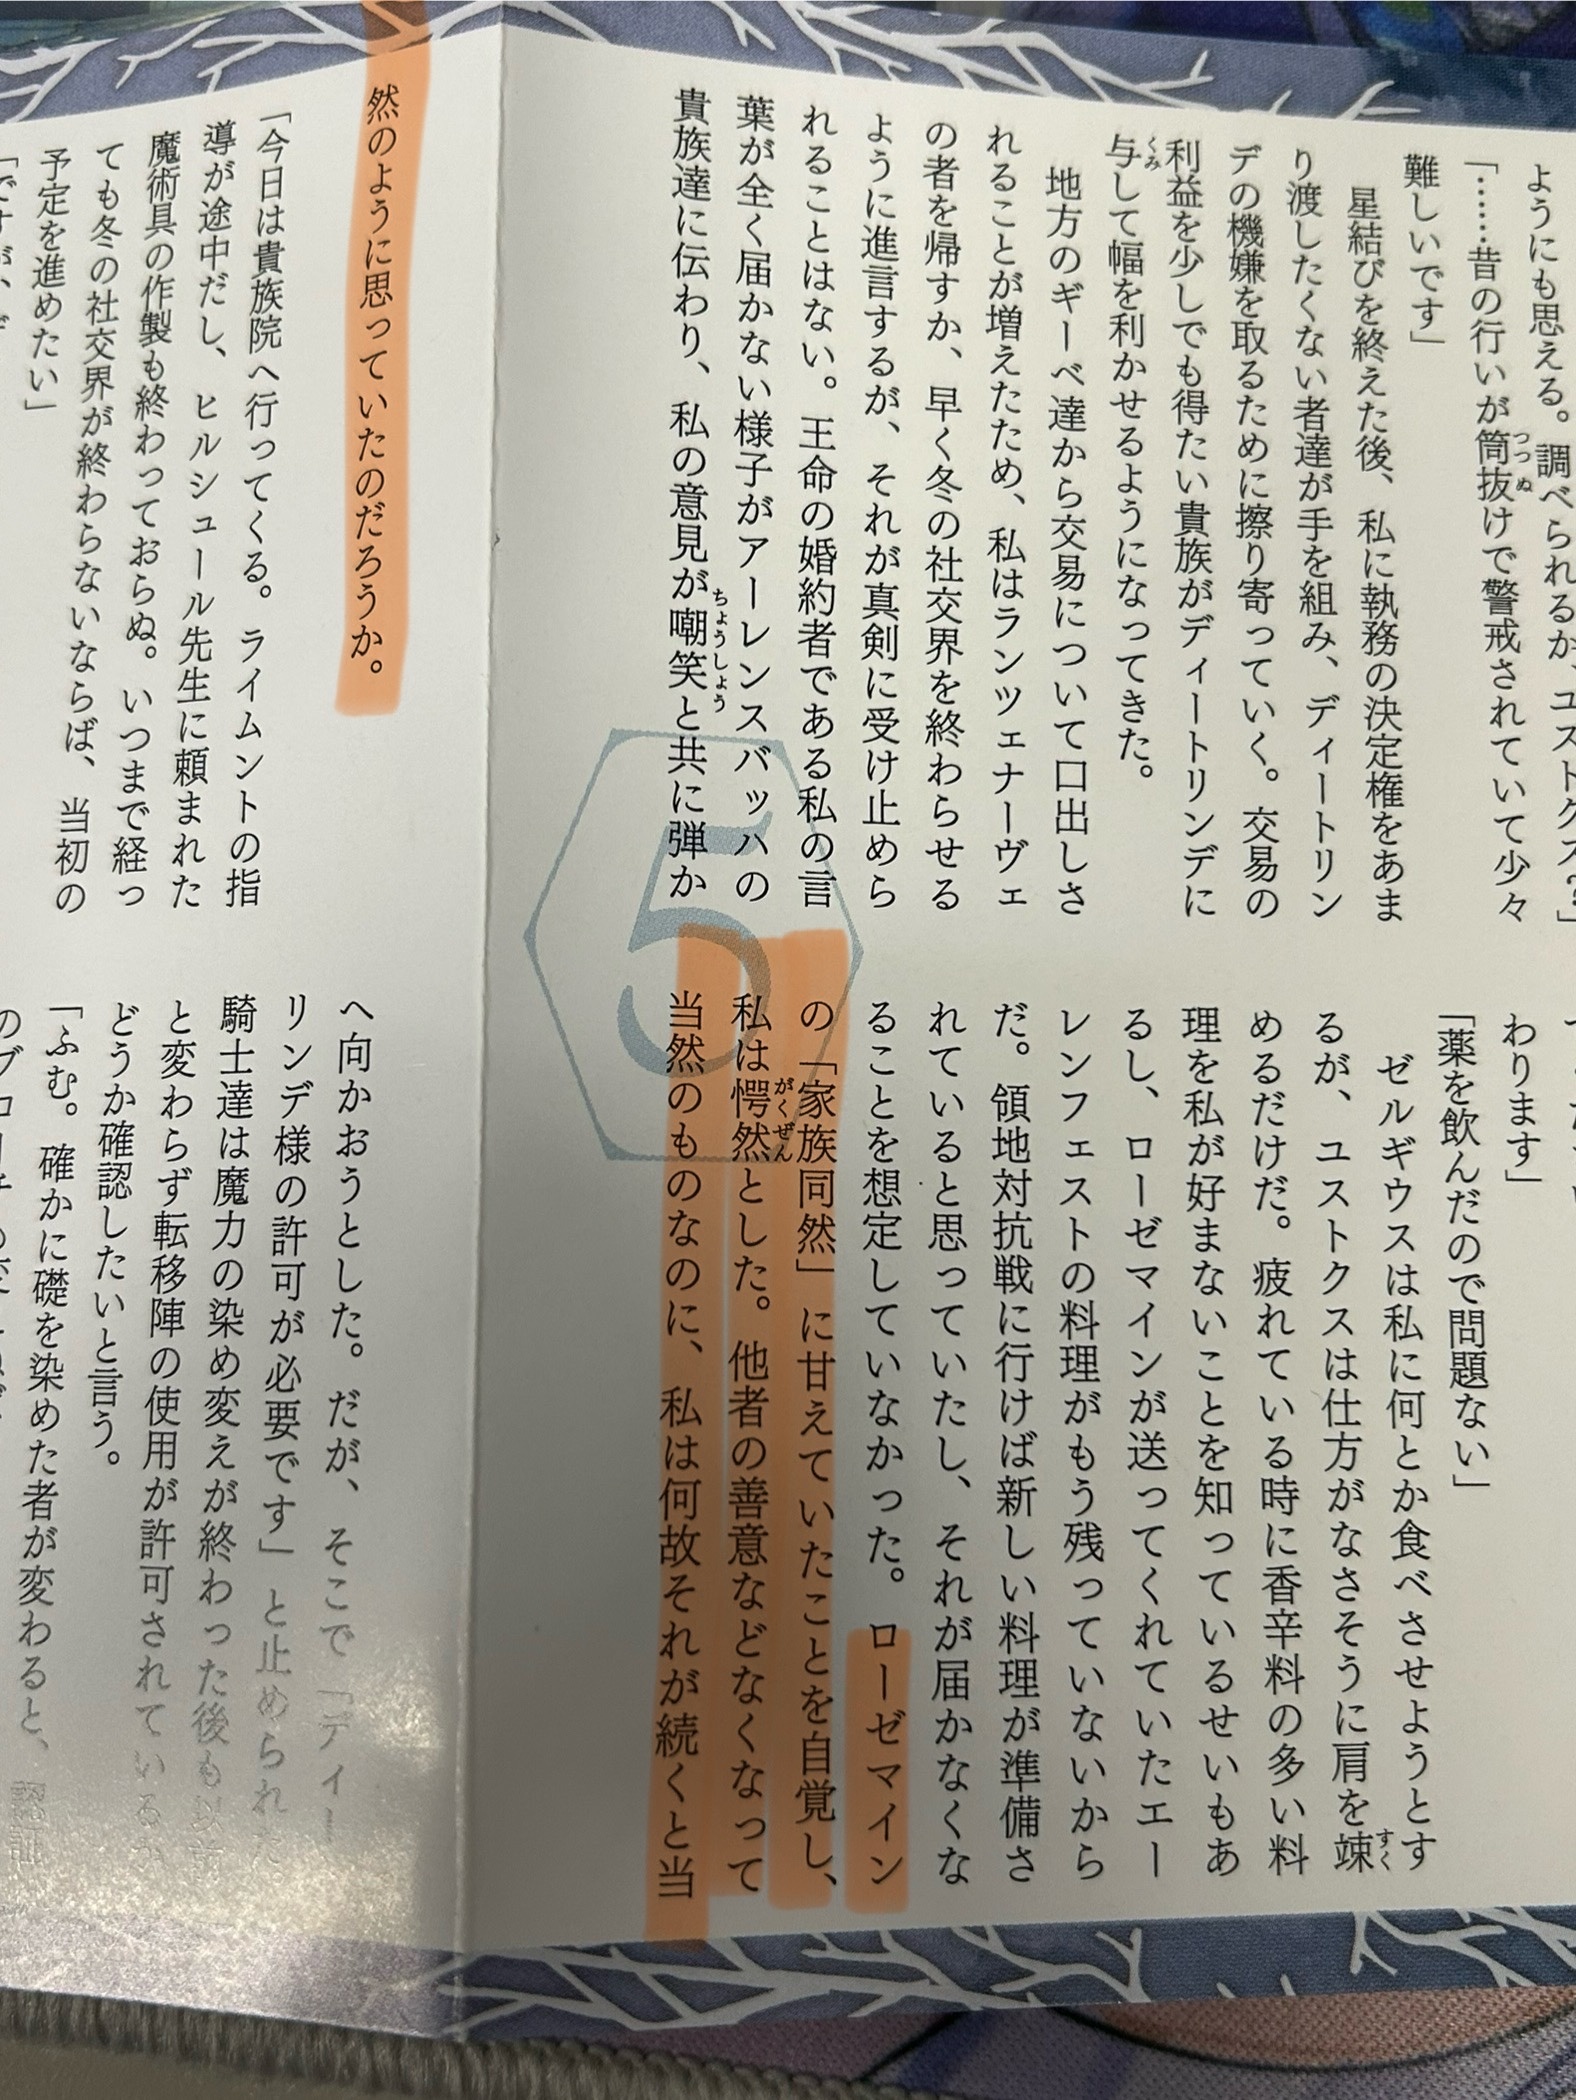 ようにも思える。調べられるか、ユストクス？」
「……昔の行いが筒抜けで警戒されていて少々
難しいです」
星結びを終えた後、私に執務の決定権をあま
り渡したくない者達が手を組み、ディートリン
デの機嫌を取るために擦り寄っていく。交易の
利益を少しでも得たい貴族がディートリンデに
与して幅を利かせるようになってきた。
地方のギーベ達から交易について口出しさ
れることが増えたため、私はランツェナーヴェ
の者を帰すか、早く冬の社交界を終わらせる
ように進言するが、それが真剣に受け止めら
れることはない。王命の婚約者である私の言
葉が全く届かない様子がアーレンスバッハの
貴族達に伝わり、私の意見が嘲笑と共に弾か
わります」
「薬を飲んだので問題ない」
ゼルギウスは私に何とか食べさせようとす
るが、ユストクスは仕方がなさそうに肩を竦
めるだけだ。疲れている時に香辛料の多い料
理を私が好まないことを知っているせいもあ
るし、ローゼマインが送ってくれていたエー
レンフェストの料理がもう残っていないから
だ。領地対抗戦に行けば新しい料理が準備さ
れていると思っていたし、それが届かなくな
ることを想定していなかった。ローゼマイン
の「家族同然」に甘えていたことを自覚し、
私は愕然とした。他者の善意などなくなって
当然のものなのに、私は何故それが続くと当
然のように思っていたのだろうか。
「今日は貴族院へ行ってくる。ライムントの指
導が途中だし、ヒルシュール先生に頼まれた
魔術具の作製も終わっておらぬ。いつまで経っ
ても冬の社交界が終わらないならば、当初の
予定を進めたい」
「ですが、
へ向かおうとした。だが、そこで「ディー
リンデ様の許可が必要です」と止められた。
騎士達は魔力の染め変えが終わった後も以前
と変わらず転移陣の使用が許可されているか
どうか確認したいと言う。
「ふむ。確かに礎を染めた者が変わると、
5